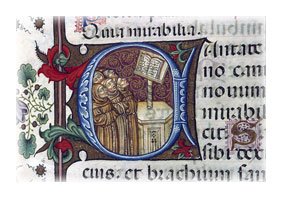 Quia mirabilia
Cantate
no can
nouum
mirabi
cit S
sibi dex
eius: et brachium san